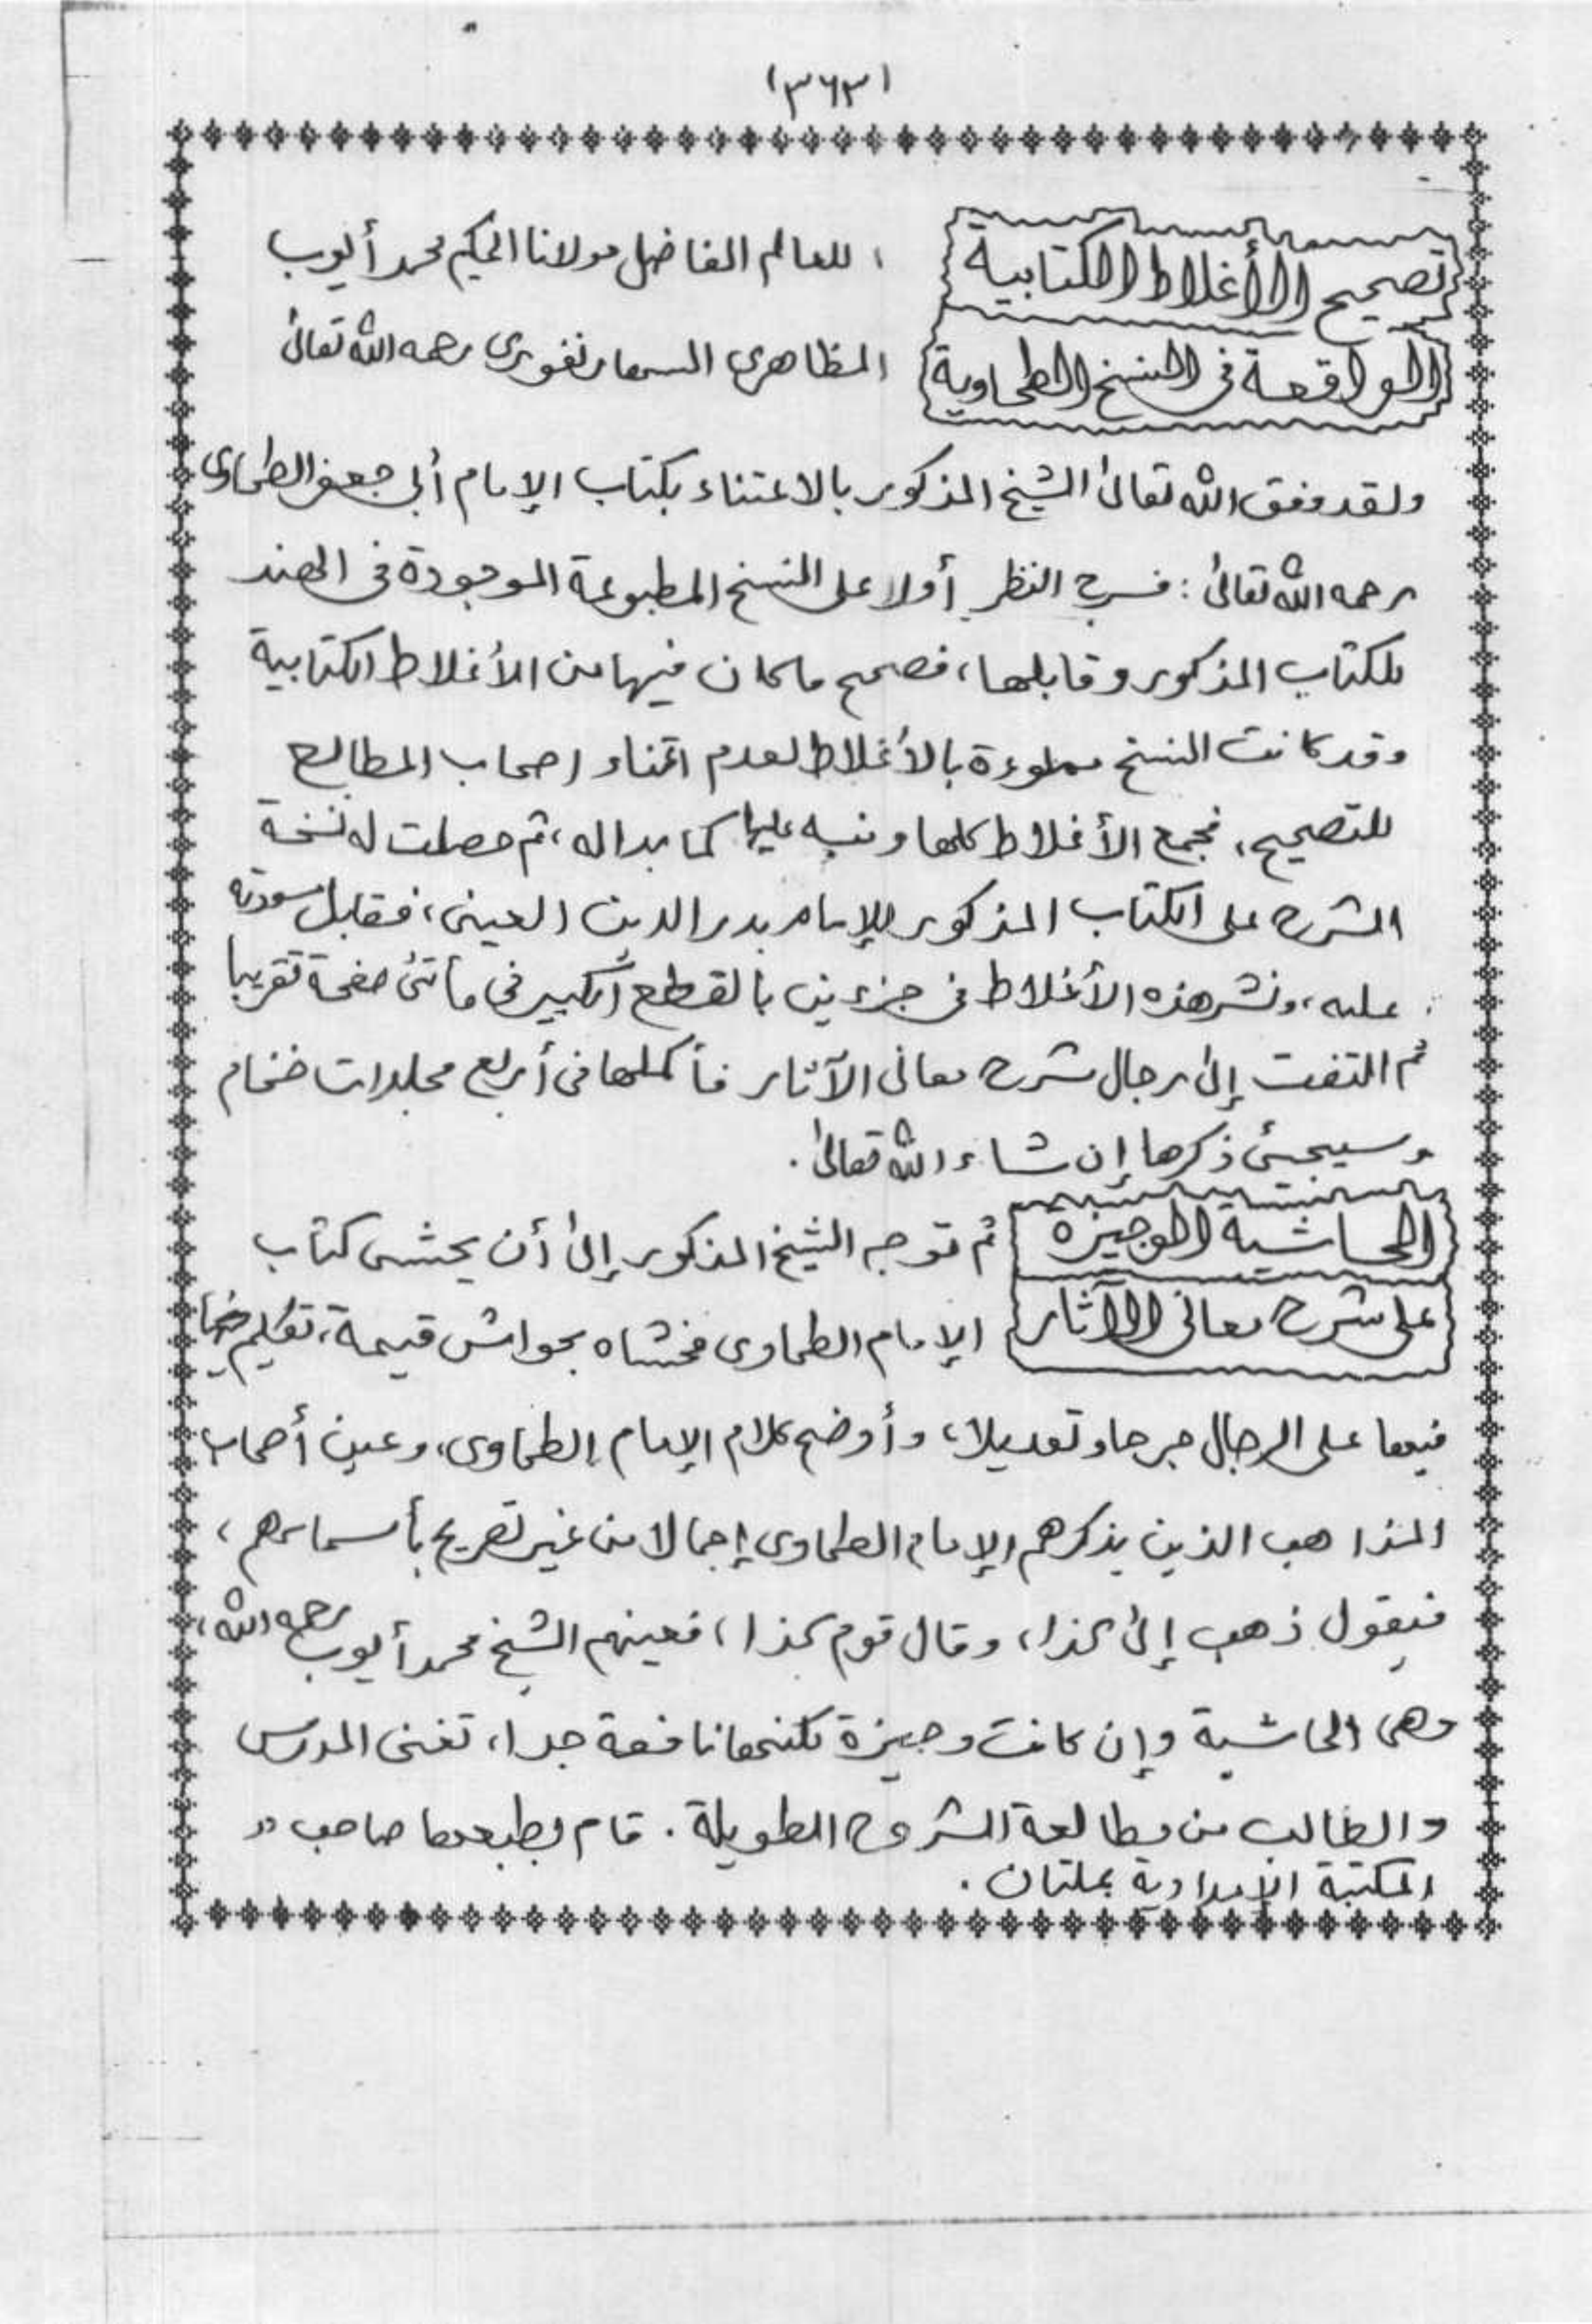 (٣٦٣)
تصحيح الأغلاط الكتابية ، للعالم الفاضل مولانا الحكيم محمد أيوب
الواقعة فى النسخ الطحاوية المظاهرى السهارنفورى رحمه الله تعالىٰ
ولقد وفق الله تعالىٰ الشيخ المذكور بالاعتناء بكتاب الإمام أبى جعفر الطحاوى
رحمه الله تعالىٰ: فسرح النظر أولا على النسخ المطبوعة الموجودة فى الهند
للكتاب المذكور وقابلها، فصحح ما كان فيها من الأغلاط الكتابية
وقد كانت النسخ مملوءة بالأغلاط لعدم اعتناء اصحاب المطابع
للتصحيح، فجمع الأغلاط كلها ونبه عليها كما بدا له، ثم حصلت له نسخة
الشرح على الكتاب المذكور للإمام بدر الدين العينى، فقابل مسودته
عليه، ونشر هذه الأغلاط فى جزءين بالقطع الكبير فى مأتى صفحة تقريبا
ثم التفت إلىٰ رجال شرح معانى الآثار فأكملها فى أربع مجلدات ضخام
وسيجئ ذكرها إن شاء الله تعالىٰ.
الحاشية الوجيزة ثم توجه الشيخ المذكور إلىٰ أن يحشى كتاب
على شرح معانى الآثار الإمام الطحاوى فحشاه بحواش قيمة، تكلم
فيها على الرجال جرحا وتعديلا، وأوضح كلام الإمام الطحاوى، وعين أصحاب
المذاهب الذين يذكرهم الإمام الطحاوى إجمالا من غير تصريح بأسمائهم،
فيقول ذهب إلىٰ كذا، وقال قوم كذا، فعينهم الشيخ محمد أيوب رحمه الله،
وهى الحاشية وإن كانت وجيزة لكنها نافعة جدا، تغنى المدرس
والطالب من مطالعة الشروح الطويلة. قام بطبعها صاحب "
المكتبة الإمدادية بملتان.